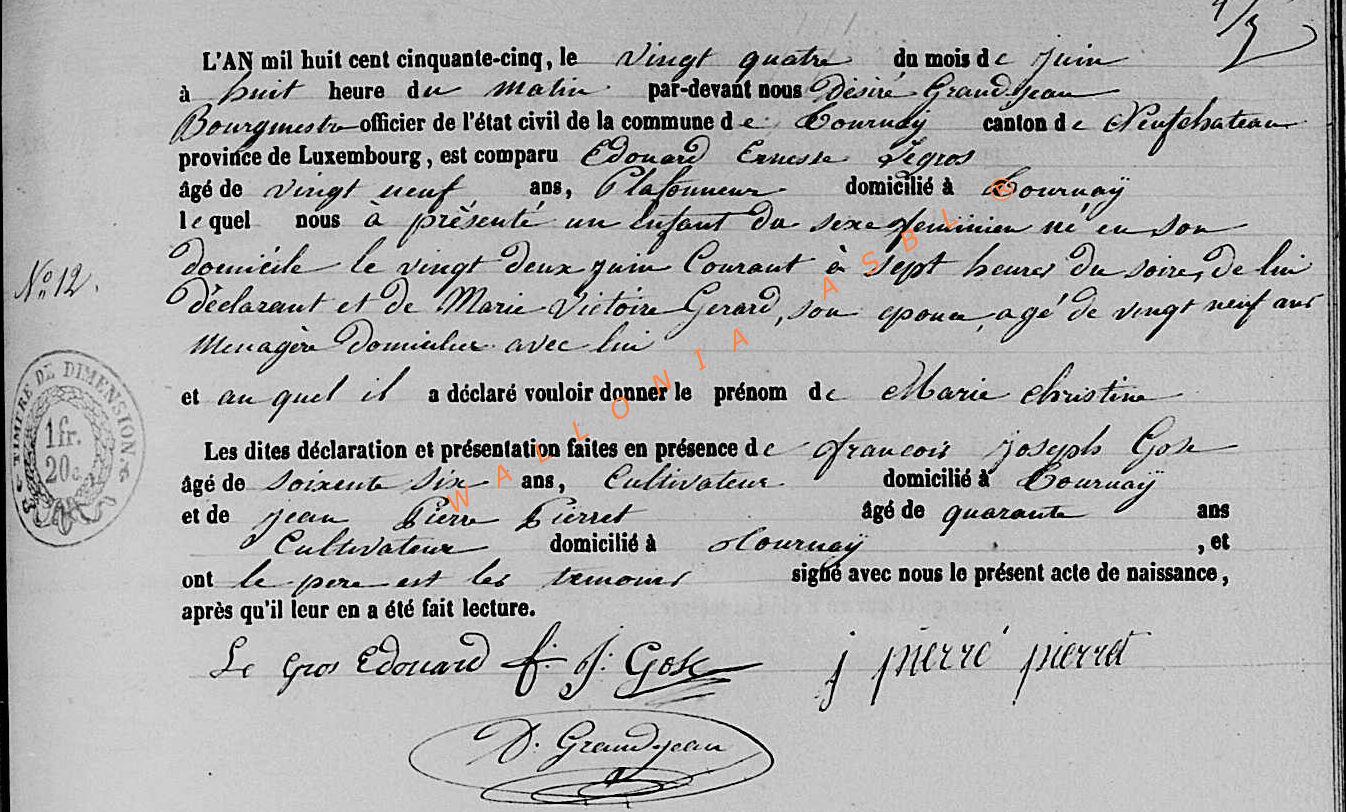 L'AN mil huit cent cinquante-cinq, le vingt quatre du mois de juin
à huit heure du matin par-devant nous Désiré Grandjean
Bourgmestre officier de l'état civil de la commune de Tournay canton de Neufchateau
province de Luxembourg, est comparu Edouard Ernest Legros
âgé de vingt neuf ans, Plafonneur domicilié à Tournaÿ
lequel nous à présenté un enfant du sexe feminien né en son
domicile le vingt deux juin Courant à sept heures du soire, de lui
déclarant et de Marie Victoire Gerard, son epouse, agé de vingt neuf ans
Menagère Domicilier avec lui
N° 12.
et au quel il a déclaré vouloir donner le prénom de Marie Christine
Les dites déclaration et présentation faites en présence de françois Joseph Gose
âgé de Soixente Six ans, Cultivateur domicilié à Tournaÿ
et de Jean Pierre Pierret âgé de quarante ans
Cultivateur domicilié à Tournaÿ, et
ont le pere est les temoins signé avec nous le présent acte de naissance,
après qu'il leur en a été fait lecture.
Le Gros Edouard f. J. Gose j pierré pierret
D. Grandjean
TIMBRE DE DIMENSION
1fr.
20c.
WALLONIA ASBL ©